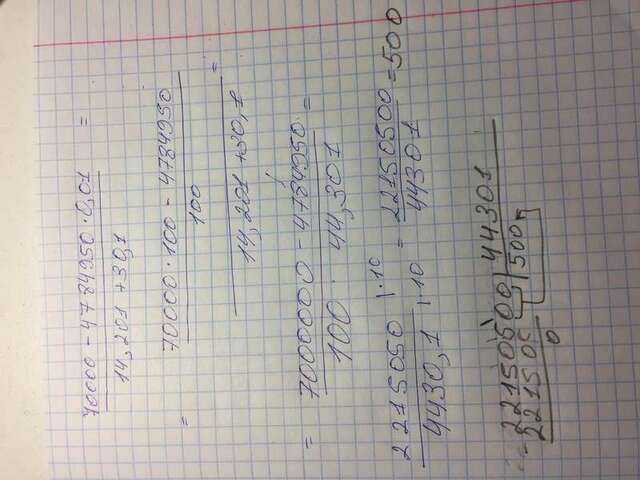 70000 - 4784950 · 0,01 =
14,201 + 30,1
= 70000 · 100 - 4784950
100
14,201 + 30,1 =
= 7000000 - 4784950 =
100 · 44,301
2215050 | · 10 = 22150500 = 500
4430,1 | · 10 44301
- 22150500 | 44301
221505 | 500
0